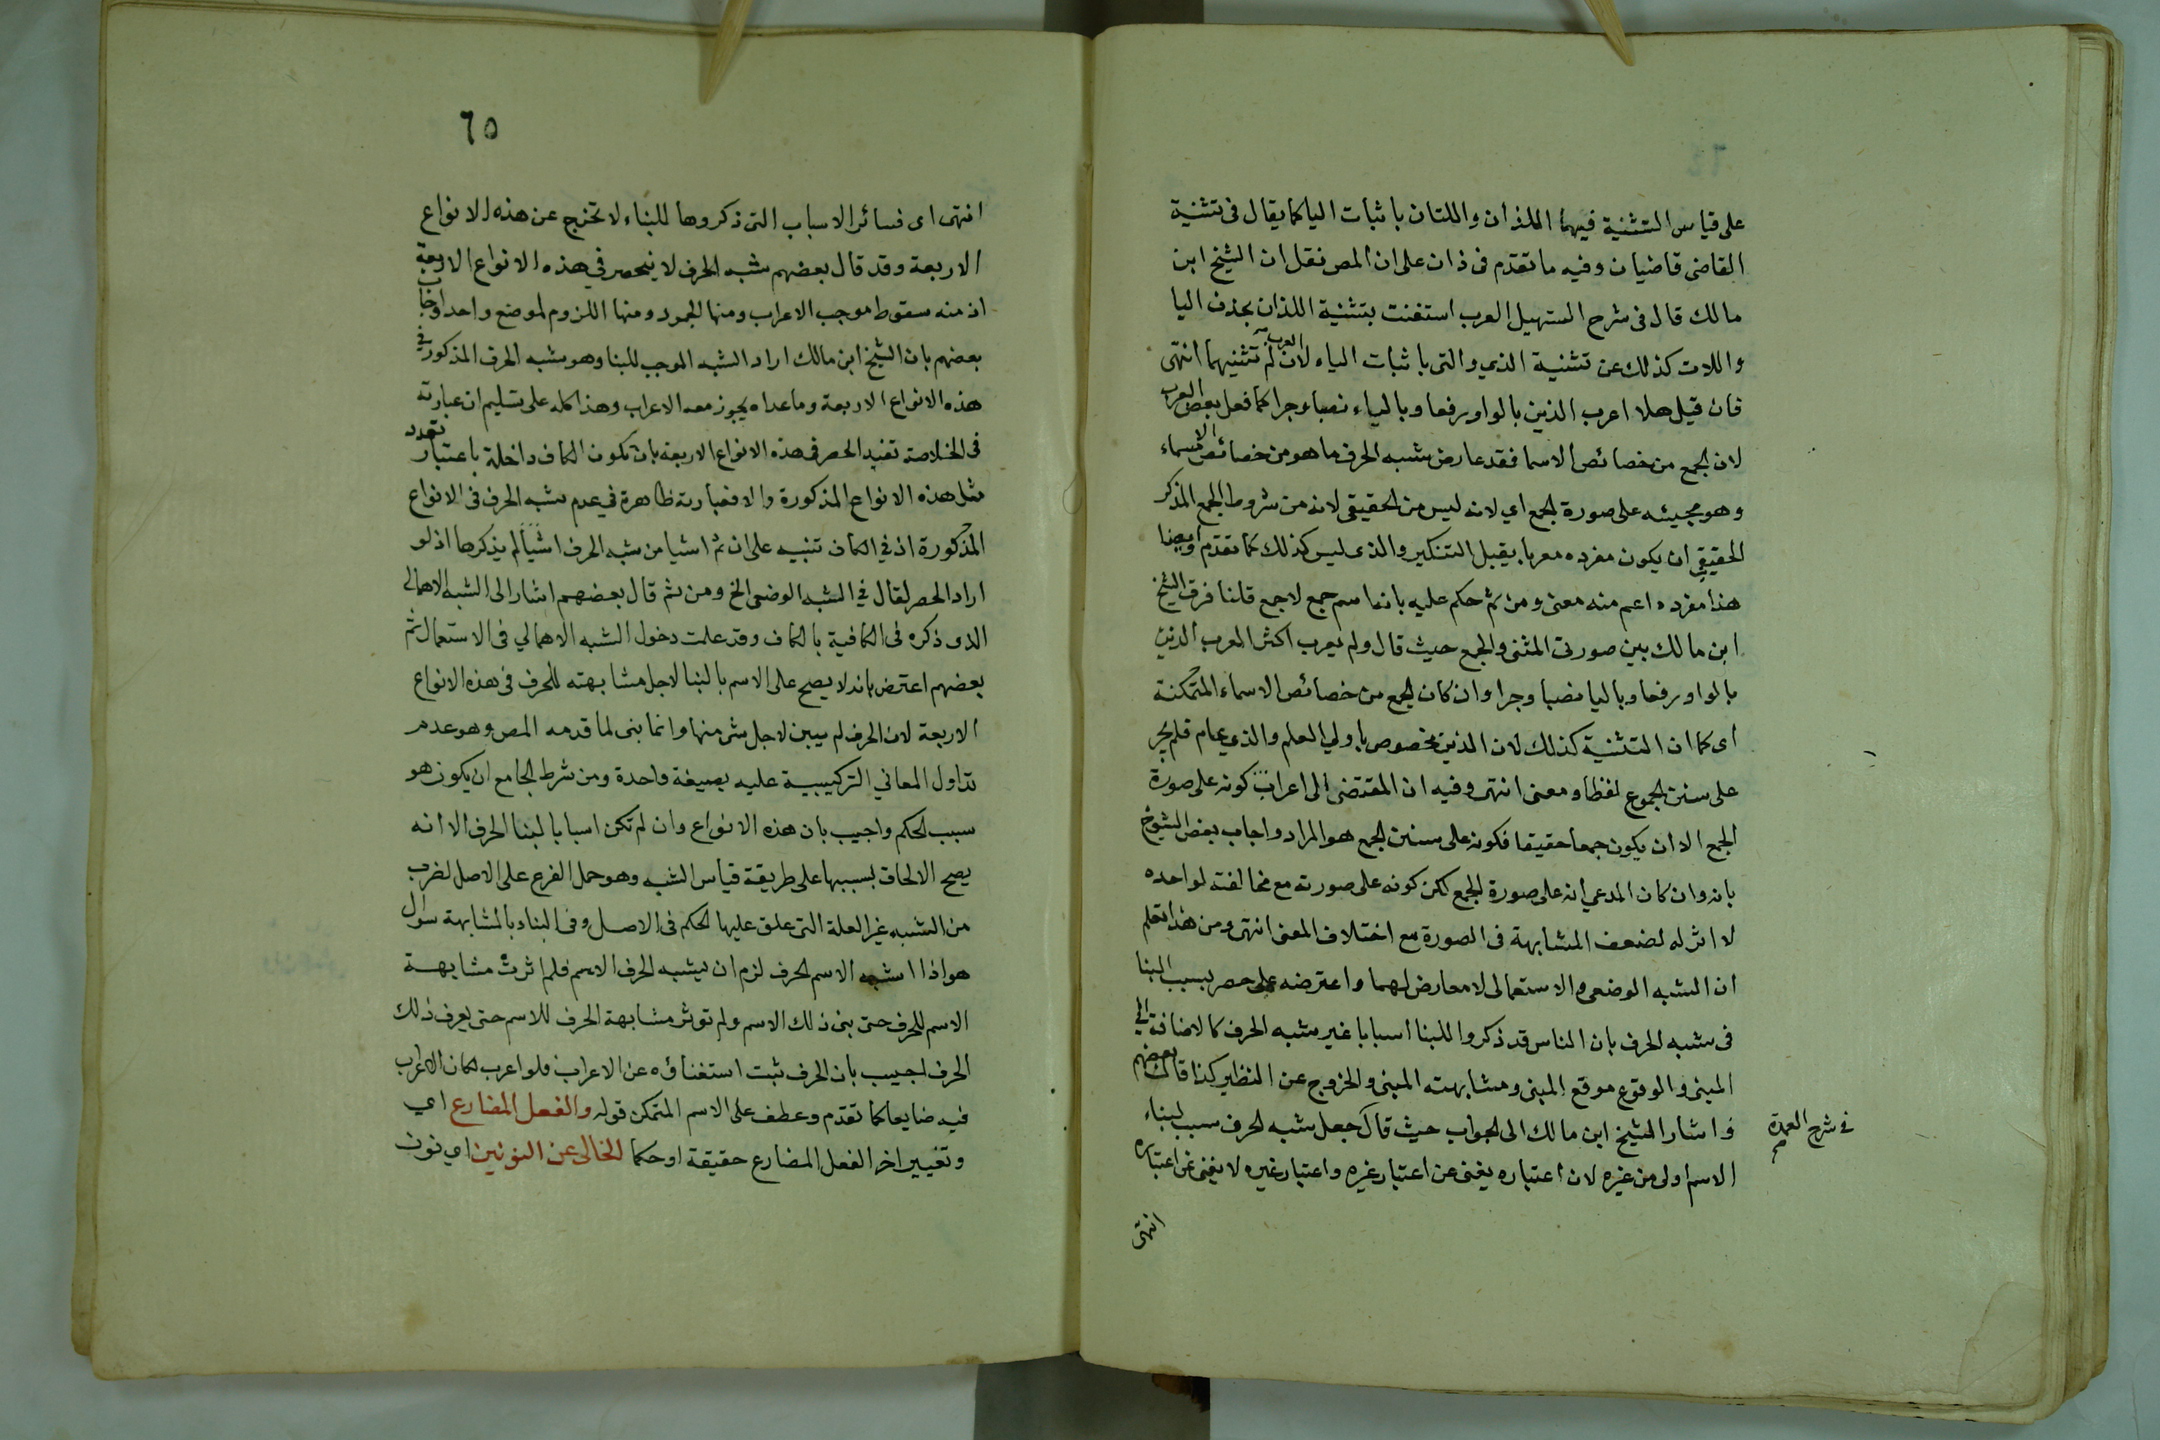 على قياس التثنية فيهما اللذان واللتان باثبات اليا كما يقال فى تثنية
القاضى قاضيان وفيه ما تقدم فى ذان على ان المص نقل ان الشيخ ابن
مالك قال فى شرح التسهيل العرب استغنت بتثنية اللذان بحذف اليا
واللات كذلك عن تثنية الذي والتى باثبات الياء لان العرب لم تثنيهما انتهى
فان قيل هلا اعرب الذين بالواو رفعا وبالياء نصبا وجرا كما فعل بعض العرب
لان الجمع من خصائص الاسما فقد عارض شبه الحرف ما هو من خصائص الاسماء
وهو مجيئه على صورة الجمع اي لانه ليس من الحقيقى لانه من شروط الجمع المذكر
الحقيقي ان يكون مفرده معربا يقبل التنكير والذى ليس كذلك كما تقدم وايضا
هذا مفرده اعم منه معنى ومن ثم حكم عليه بانه اسم جمع لا جمع قلنا فرق الشيخ
ابن مالك بين صورتى المثنى والجمع حيث قال ولم يعرب اكثر العرب الذين
بالواو رفعا وباليا نصبا وجرا وان كان الجمع من خصائص الاسماء المتمكنة
اى كما ان التثنية كذلك لان الذين مخصوص باولي العلم والذي عام فلم يجر
على سنن الجموع لفظا ومعنى انتهى وفيه ان المقتضى الى اعرابه كونه على صورة
الجمع الا ان يكون جمعا حقيقا فكونه على سنين الجمع هو المراد واجاب بعض الشيوخ
بانه وان كان المدعي انه على صورة الجمع لكن كونه على صورته مع مخالفته لواحده
لا اثر له لضعف المشابهة فى الصورة مع اختلاف المعنى انتهى ومن هذا تعلم
ان الشبه الوضعى والاستعمالى لا معارض لهما واعترضه على حصر بسبب البنا
فى شبه الحرف بان الناس قد ذكروا للبنا اسبابا غير شبه الحرف كالاضافة الى
المبنى والوقوع موقع المبنى ومشابهته المبنى والخروج عن النظير كذا قال بعضهم
واشار الشيخ ابن مالك الى الجواب حيث قال جعل شبه الحرف سبب لبناء
فى شرح العمدة صح
الاسم اولى من غيره لان اعتباره يغنى عن اعتبار غيره واعتبار غيره لا يغنى عن اعتباره
انتهى
٦٥
انتهى اى فسائر الاسباب التى ذكروها للبناء لا تخرج عن هذه الانواع
الاربعة وقد قال بعضهم شبه الحرف لا ينحصر في هذه الانواع الاربعة
اذ منه سقوط موجب الاعراب ومنها الجمود ومنها اللزوم لموضع واحد واجاب
بعضهم بان الشيخ ابن مالك اراد الشبه الموجب للبنا وهو شبه الحرف المذكور فى
هذه الانواع الاربعة وما عداه يجوز معه الاعراب وهذا كله على تسليم ان عبارته
فى الخلاصة تفيد الحصر فى هذه الانواع الاربعة بان تكون الكاف داخلة باعتبار تعدد
مثل هذه الانواع المذكورة والا فعبارته ظاهرة في عدم شبه الحرف فى الانواع
المذكورة اذ في الكاف تنبيه على ان ثم اشيا من شبه الحرف اشيا لم يذكرها اذ لو
اراد الحصر لقال في الشبه الوضعى الخ ومن ثم قال بعضهم اشار الى الشبه الاهمالى
الذى ذكره فى الكافية بالكاف وقد علمت دخول الشبه الاهمالي فى الاستعمال ثم
بعضهم اعترض بانه لا يصح على الاسم بالبنا لاجل مشابهته للحرف فى هذه الانواع
الاربعة لان الحرف لم يبن لاجل شى منها وانما بنى لما قدمه المص وهو عدم
تداول المعاني التركيبية عليه بصيغة واحدة ومن شرط الجامع ان يكون هو
سبب الحكم واجيب بان هذه الانواع وان لم تكن اسبابا لبنا الحرف الا انه
يصح الالحاق بسببها على طريقة قياس الشبه وهو حمل الفرع على الاصل لضرب
من الشبه غير العلة التى علق عليها الحكم فى الاصل وفى البناء بالمشابهة سؤال
هو اذا اشبه الاسم الحرف لزم ان يشبه الحرف الاسم فلم اثرت مشابهة
الاسم للحرف حتى بنى ذلك الاسم ولم توثر مشابهة الحرف للاسم حتى يعرف ذلك
الحرف اجيب بان الحرف ثبت استغناؤه عن الاعراب فلو اعرب لكان الاعراب
فيه ضايعا كما تقدم وعطف على الاسم المتمكن قوله والفعل المضارع اي
وتغيير اخر الفعل المضارع حقيقة او حكما الخالى عن النونين اي نون